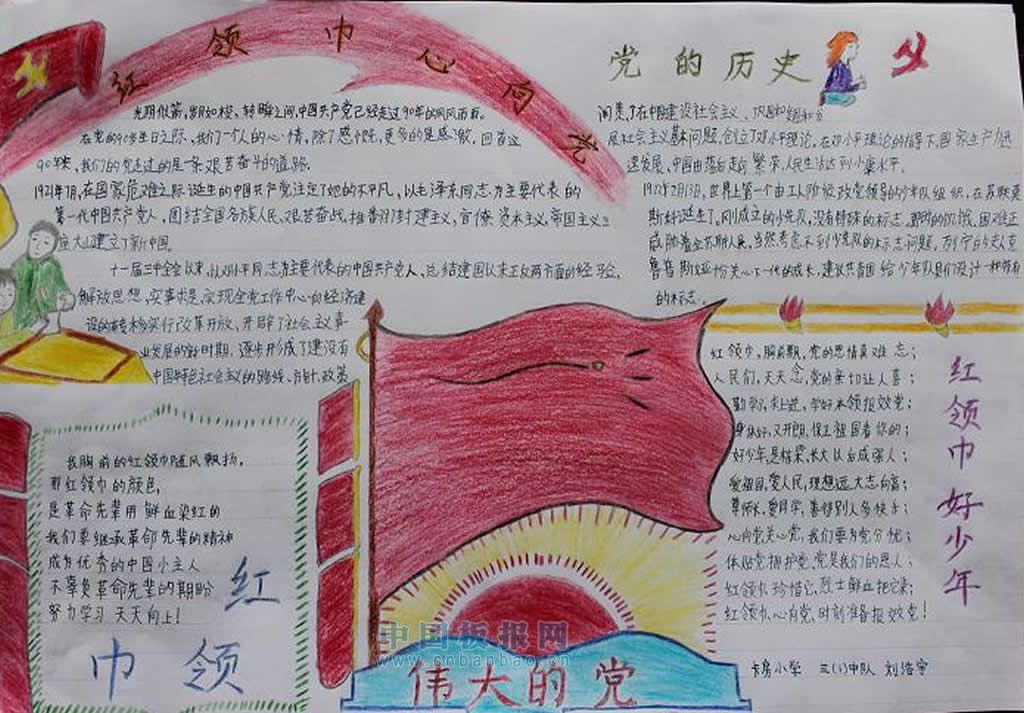 红领巾心向党
光阴似箭,岁月如梭,转瞬之间,中国共产党已经走过90年的风风雨雨。
在党的90岁生日之际,我们一个人的心情,除了感慨,更多的是感激,回首这
90年来,我们的党走过的是一条艰苦奋斗的道路。
1921年7月,在国家危难之际诞生的中国共产党注定了她的不平凡,以毛泽东同志为主要代表的
第一代中国共产党人,团结全国各族人民、艰苦奋战、推番了封建主义,官僚资本主义,帝国主义三
座大山建立了新中国。
十一届三中全会以来,以邓小平同志为主要代表的中国共产党人,总结建国以来正反两方面的经验,
解放思想,实事求是,实现全党工作中心向经济建
设的转移实行改革开放,开辟了社会主义事
业发展的新时期,逐步形成了建设有
中国特色社会主义的路线、方针、政策
党的历史
在中国建设社会主义、巩固和
展社会主义基本问题,创立了邓小平理论,在邓小平理论的指导下,国家生产力迅
速发展,中国由落后走向繁荣,人民生活达到小康水平。
1922年2月13,世界上第一个由工人阶级政党领导的少年队组织,在苏联莫
斯科诞生了,刚成立的少先队,没有特殊的标志。那时的饥饿,困难正
威胁着全苏联人民,当然考虑不到少先队的标志问题,列宁的夫人克
鲁普斯娅十分关心下一代的成长,建议共青团给少年队员们设计一种带有
的标志。
红领巾,胸前飘,党的恩情真难忘;
人民们,天天念,党的亲切让人喜;
勤学习,求上进,学好本领报效党;
身体好,又开朗,保卫祖国看你的;
好少年,是栋梁,长大以后成强人;
爱祖国,爱人民,理想远大志向高;
尊师长,爱同学,善待别人多快乐;
心向党,关心党,我们要为党分忧;
体贴党,拥护党,党是我们的恩人;
红领巾,珍惜它,烈士鲜血把它染;
红领巾,心向党,时刻准备报效党!
红领巾 好少年
我胸前的红领巾随风飘扬,
那红领巾的颜色,
是革命先辈用鲜血染红的
我们要继承革命先辈的精神
成为优秀的中国小主人
不辜负革命先辈的期盼
努力学习 天天向上!
红
领
巾
中国板报网
www.cnbanbao.cn
伟大的党
卡房小学 三(1)中队 刘浩宇